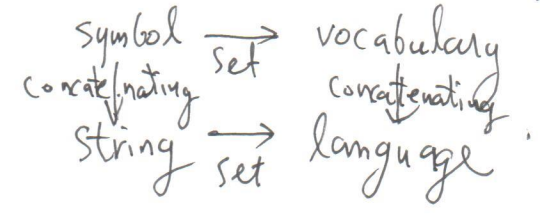 symbol → vocabulary
set
concatenating concatenating
string → language
set